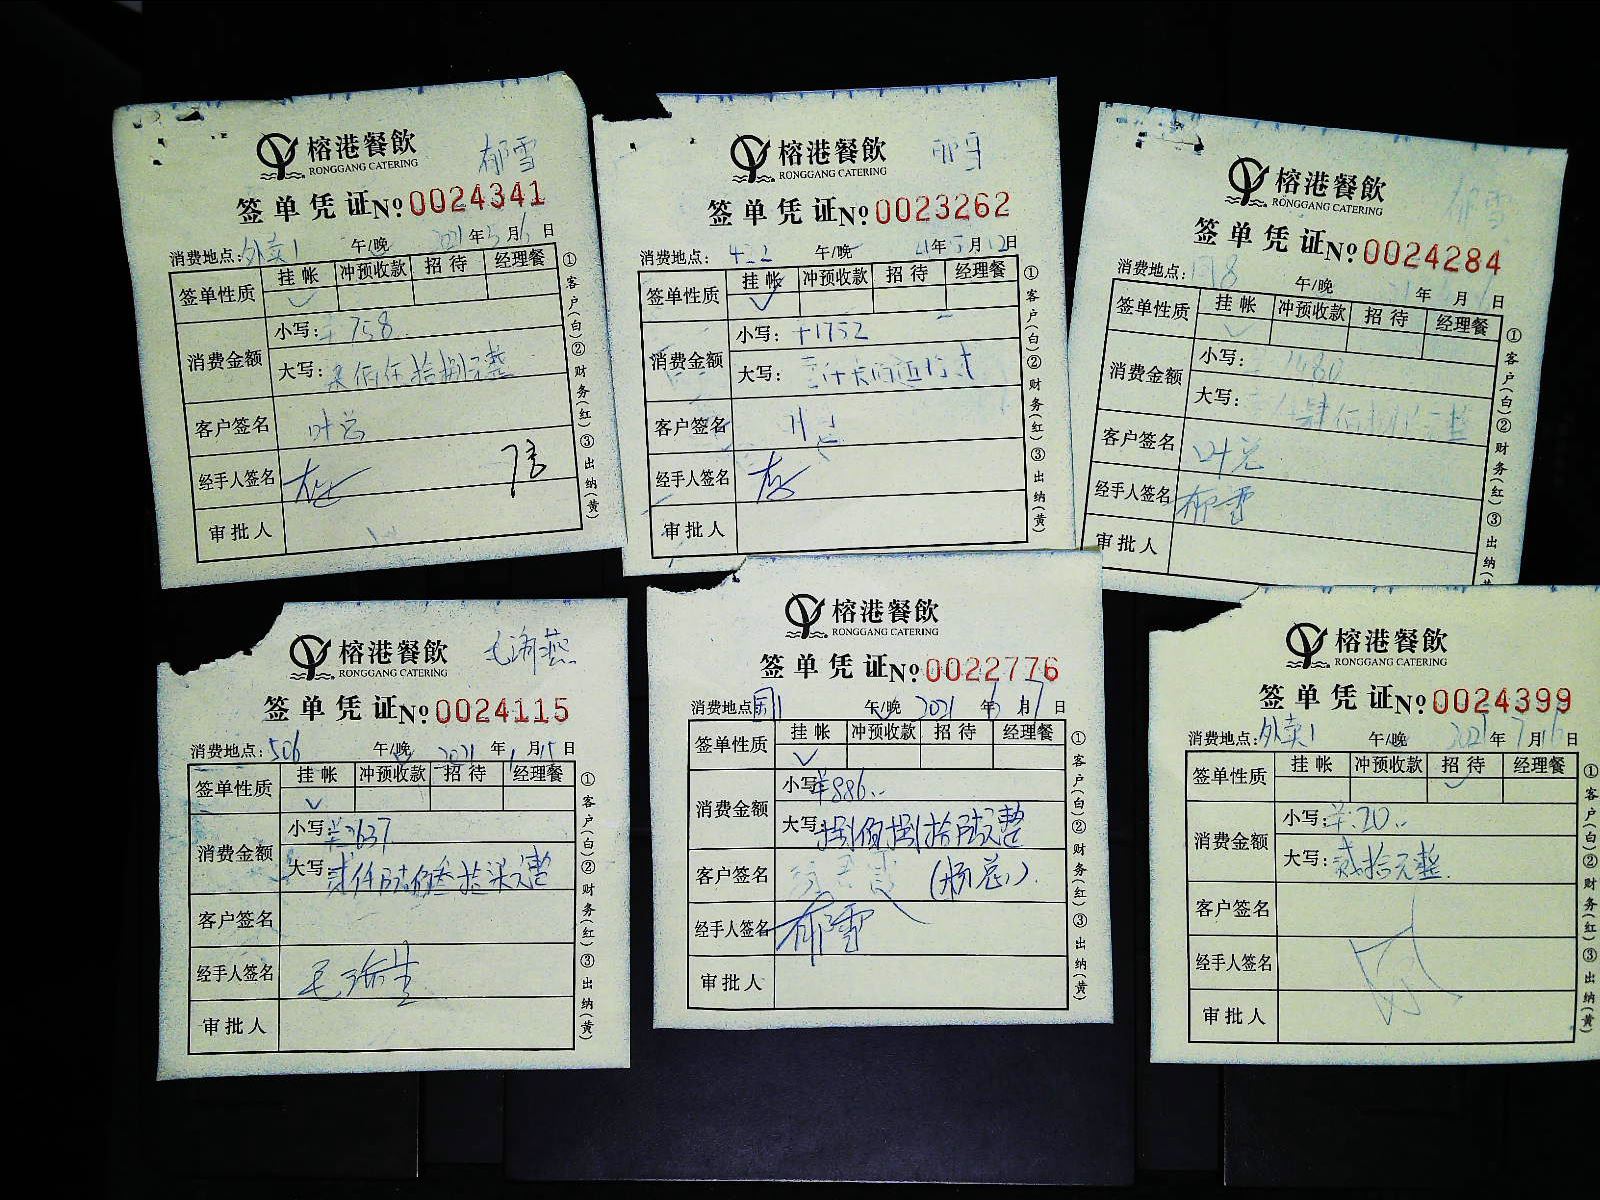 榕港餐飲
RONGGANG CATERING
郁雪
签单凭证№0024341
消费地点:外卖1 午/晚 2021年5月6日
签单性质 挂帐 冲预收款 招待 经理餐
消费金额
小写:¥758
大写:柒佰伍拾捌元整
客户签名 叶总
经手人签名
审批人
①客户(白)②财务(红)③出纳(黄)
榕港餐飲
RONGGANG CATERING
郁雪
签单凭证№0023262
消费地点:422 午/晚 21年5月12日
签单性质 挂帐 冲预收款 招待 经理餐
消费金额
小写:¥1752
大写:
客户签名 叶总
经手人签名
审批人
①客户(白)②财务(红)③出纳(黄)
榕港餐飲
RONGGANG CATERING
郁雪
签单凭证№0024284
消费地点: 午/晚 年 月 日
签单性质 挂帐 冲预收款 招待 经理餐
消费金额
小写:1480
大写:肆佰捌拾元整
客户签名 叶总
经手人签名 郁雪
审批人
①客户(白)②财务(红)③出纳(黄)
榕港餐飲
RONGGANG CATERING
签单凭证№0024115
消费地点:506 午/晚 2021年1月15日
签单性质 挂帐 冲预收款 招待 经理餐
消费金额
小写:¥2637
大写:贰仟陆佰叁拾柒元整
客户签名
经手人签名
审批人
①客户(白)②财务(红)③出纳(黄)
榕港餐飲
RONGGANG CATERING
签单凭证№0022776
消费地点: 午/晚 2021年6月7日
签单性质 挂帐 冲预收款 招待 经理餐
消费金额
小写:¥886
大写:捌佰捌拾陆元整
客户签名 (杨总)
经手人签名 郁雪
审批人
①客户(白)②财务(红)③出纳(黄)
榕港餐飲
RONGGANG CATERING
签单凭证№0024399
消费地点:外卖1 午/晚 2021年7月16日
签单性质 挂帐 冲预收款 招待 经理餐
消费金额
小写:¥20
大写:贰拾元整
客户签名
经手人签名
审批人
①客户(白)②财务(红)③出纳(黄)